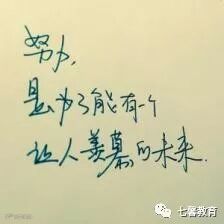 努力,
是为了能有一个
让人羡慕的未来.
七馨教育